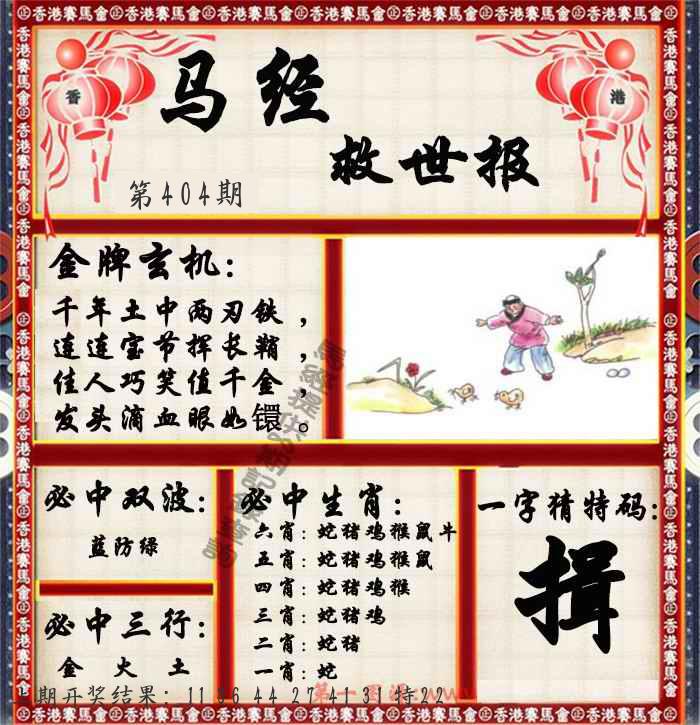 马经
救世报
香
港
第404期
金牌玄机：
千年土中两刃铁，
连连宝节挥长鞘，
佳人巧笑值千金，
发头滴血眼如镮。
必中双波：
蓝防绿
必中三行：
金 火 土
必中生肖：
六肖：蛇猪鸡猴鼠牛
五肖：蛇猪鸡猴鼠
四肖：蛇猪鸡猴
三肖：蛇猪鸡
二肖：蛇猪
一肖：蛇
一字猜特码：
揖
期开奖结果：11 36 44 27 41 31特22
香港賽馬會